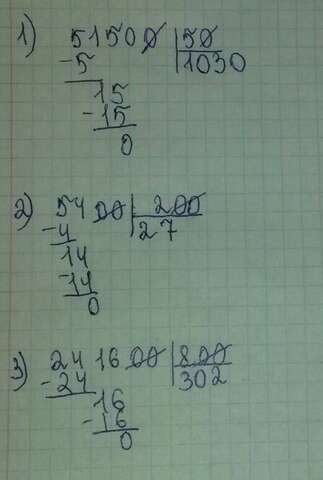 1) 51500 | 50
-5 | 1030
15
-15
0
2) 5400 | 200
-4 | 27
14
-14
0
3) 241600 | 800
-24 | 302
16
-16
0